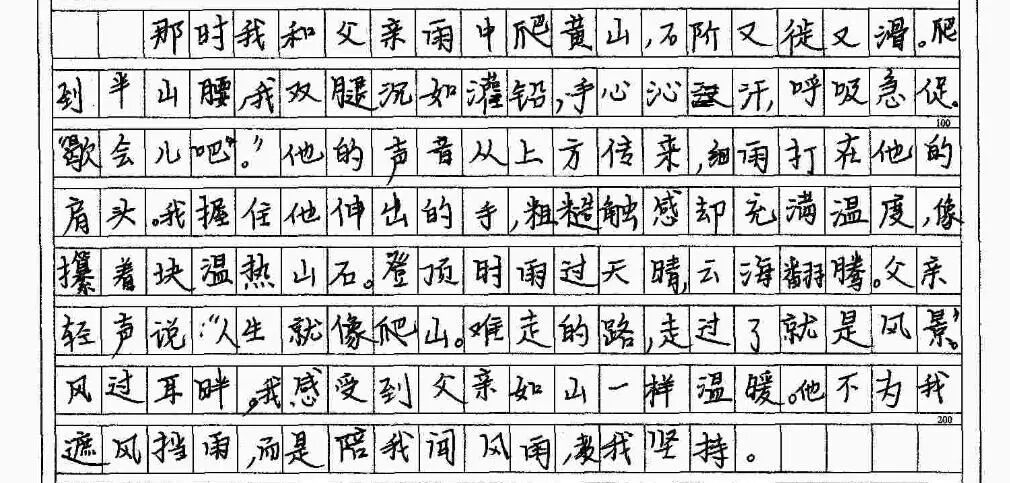 那时我和父亲雨中爬黄山，石阶又徙又滑。爬
到半山腰，我双腿沉如灌铅，手心沁汗，呼吸急促。
100
“歇会儿吧”。”他的声音从上方传来，细雨打在他的
肩头。我握住他伸出的手，粗糙触感却充满温度，像
攥着块温热山石。登顶时雨过天晴，云海翻腾。父亲
轻声说：“人生就像爬山。难走的路，走过了就是风景。”
风过耳畔，我感受到父亲如山一样温暖。他不为我
200
遮风挡雨，而是陪我闻风雨，教我坚持。